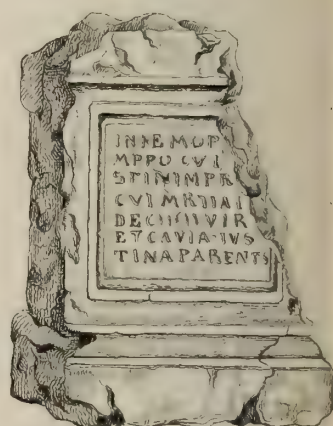 INHEMOP
MPPO CVI
STINIMPR
CVI MRTIALI
DEC IIVIR
ET CAVIA·IVS
TINA PARENTS